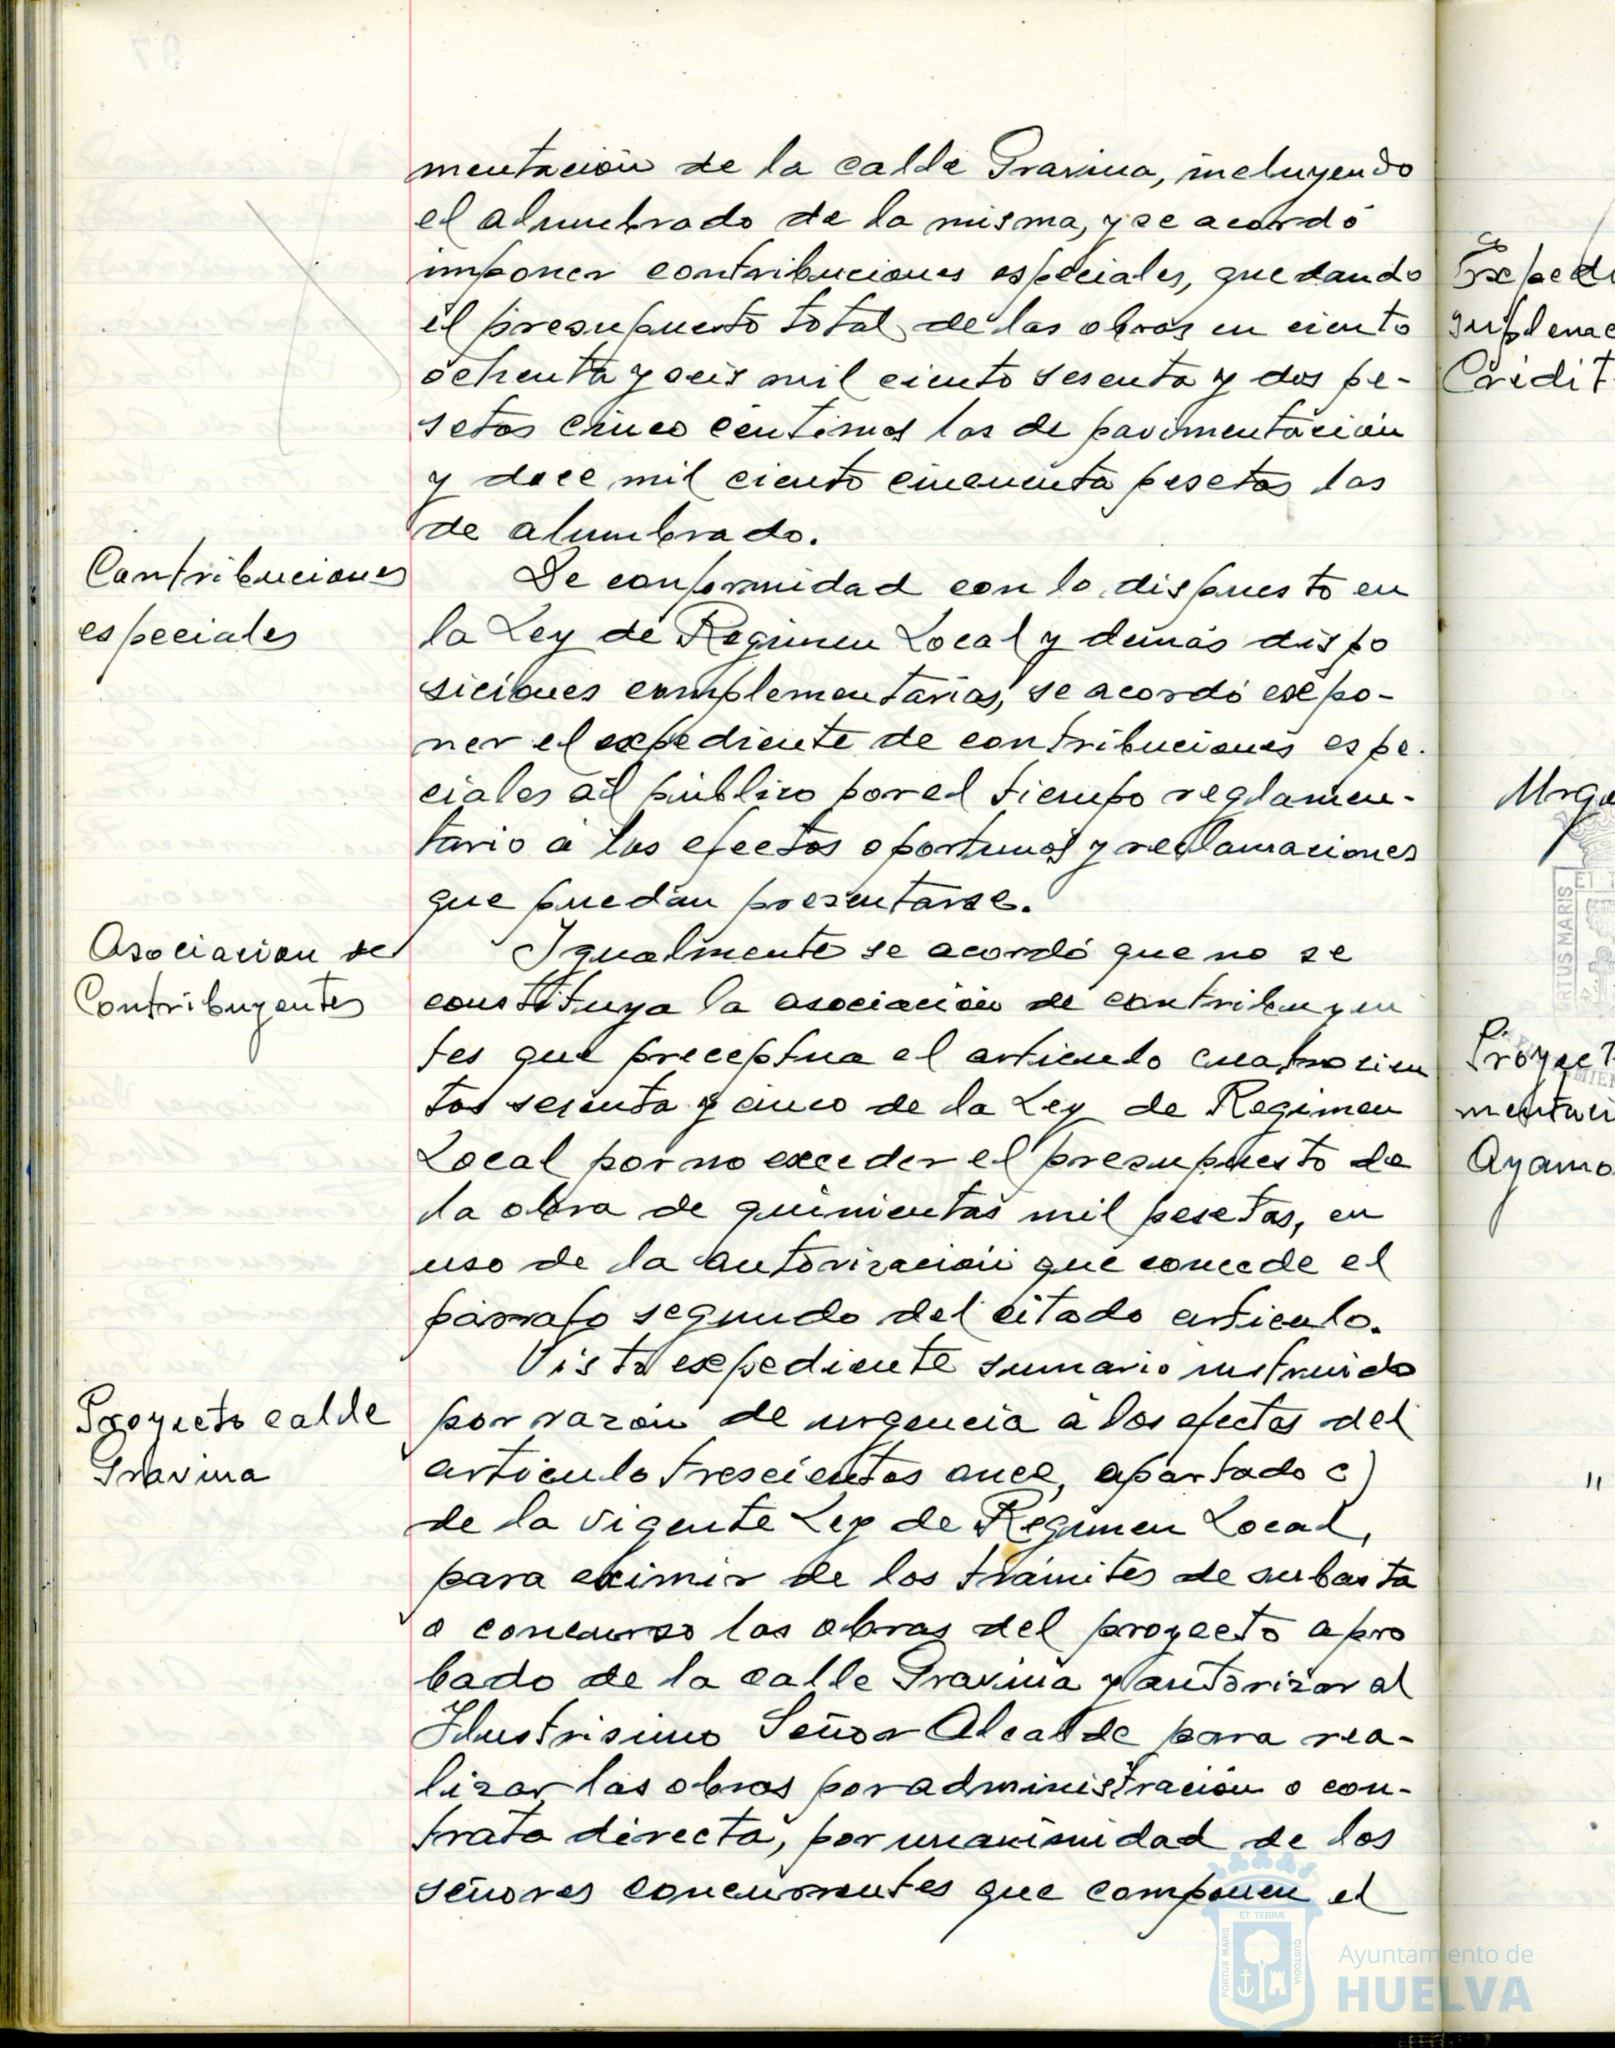 mentación de la calle Gravina, incluyendo
el alumbrado de la misma, y se acordó
imponer contribuciones especiales, quedando
el presupuesto total de las obras en ciento
ochenta y seis mil ciento sesenta y dos pe-
setas cinco centimos las de pavimentación
y doce mil ciento cincuenta pesetas las
de alumbrado.
Contribuciones
especiales
De conformidad con lo dispuesto en
la Ley de Regimen Local y demás dispo
siciones complementarias, se acordó expo-
ner el expediente de contribuciones espe-
ciales al público por el tiempo reglamen-
tario a los efectos oportunos y reclamaciones
que puedan presentarse.
Asociacion de
Contribuyentes
Igualmente se acordó que no se
constituya la asociación de contribuyen
tes que preceptua el articulo cuatrocien
tos sesenta y cinco de la Ley de Regimen
Local por no exceder el presupuesto de
la obra de quinientas mil pesetas, en
uso de la autorización que concede el
párrafo segundo del citado articulo.
Proyecto calle
Gravina
Visto expediente sumario instruido
por razón de urgencia a los efectos del
articulo trescientos once, apartado c)
de la vigente Ley de Regimen Local,
para eximir de los trámites de subasta
o concurso las obras del proyecto apro
bado de la calle Gravina y autorizar al
Ilustrisimo Señor Alcalde para rea-
lizar las obras por administración o con-
trata directa, por unanimidad de los
señores concurrentes que componen el
Expedi
suplemen
Crédit
Urge
Proyect
mentaci
Ayamo
"
PORTUS MARIS
ET TERRÆ
CUSTODIA
Ayuntamiento de
HUELVA